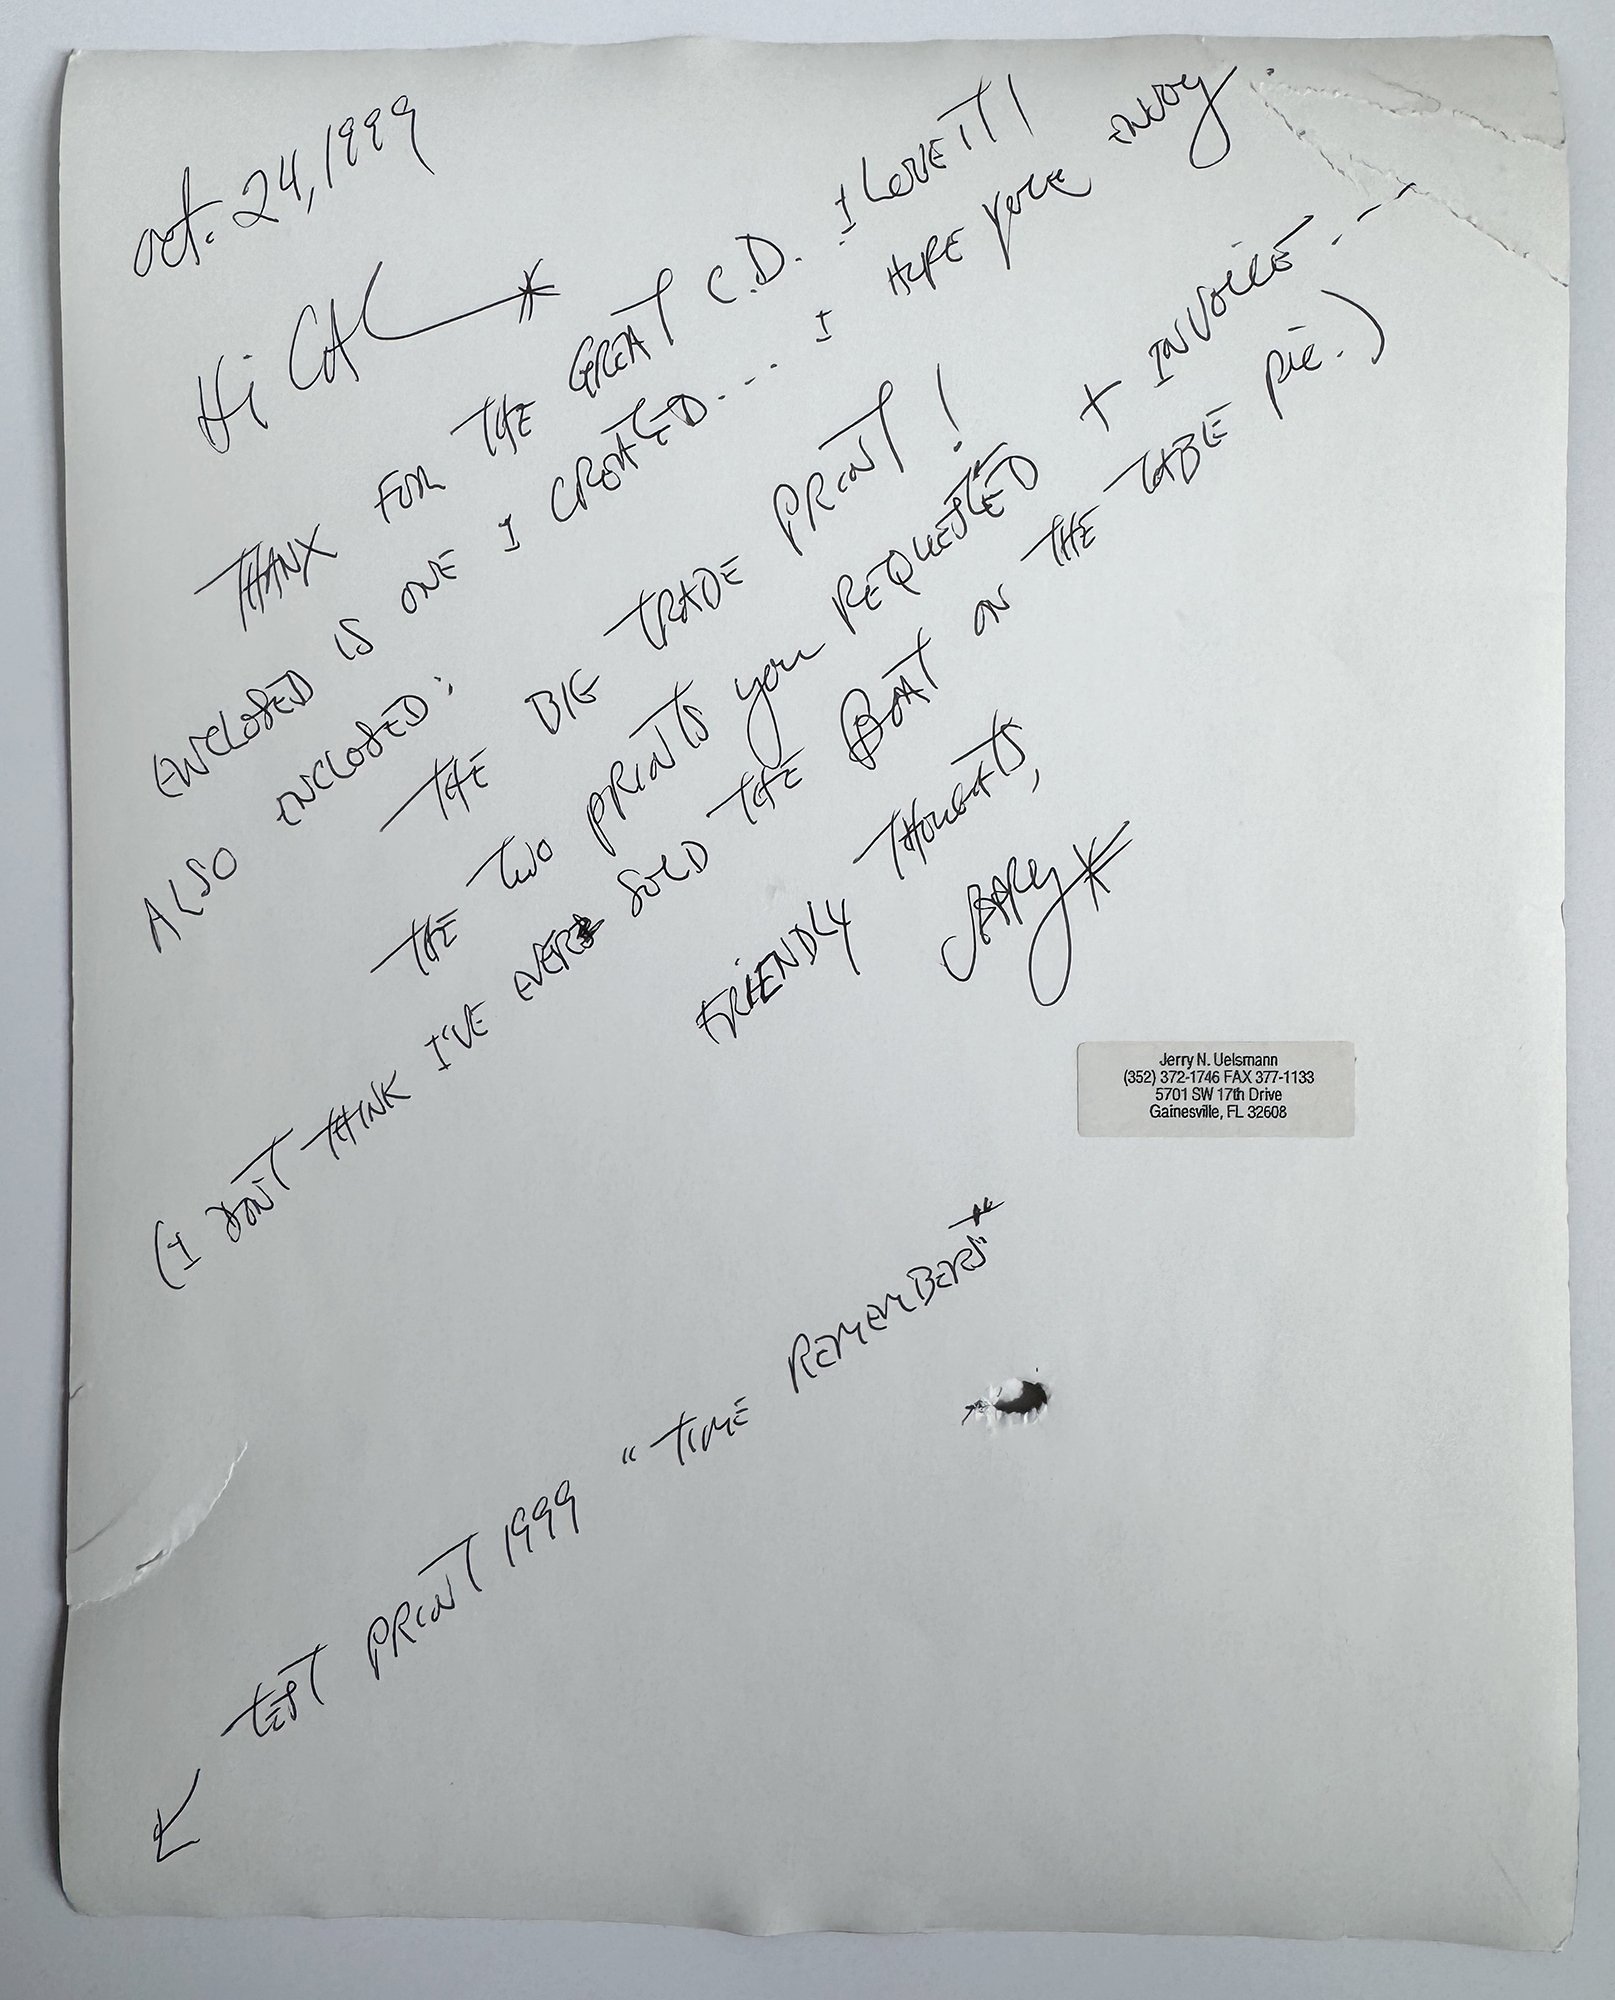 Oct. 24, 1999
Hi CAL
THANX FOR THE GREAT C.D. I LOVE IT!
ENCLOSED IS ONE I CREATED... I HOPE YOU ENJOY.
ALSO ENCLOSED:
THE BIG TRADE PRINT!
THE TWO PRINTS you REQUESTED + INVOICE---
(I DON'T THINK I'VE EVER SOLD THE BOAT ON THE TABLE PIC.)
FRIENDLY THOUGHTS,
JERRY
Jerry N. Uelsmann
(352) 372-1746 FAX 377-1133
5701 SW 17th Drive
Gainesville, FL 32608
TEST PRINT 1999 "TIME REMEMBERS"